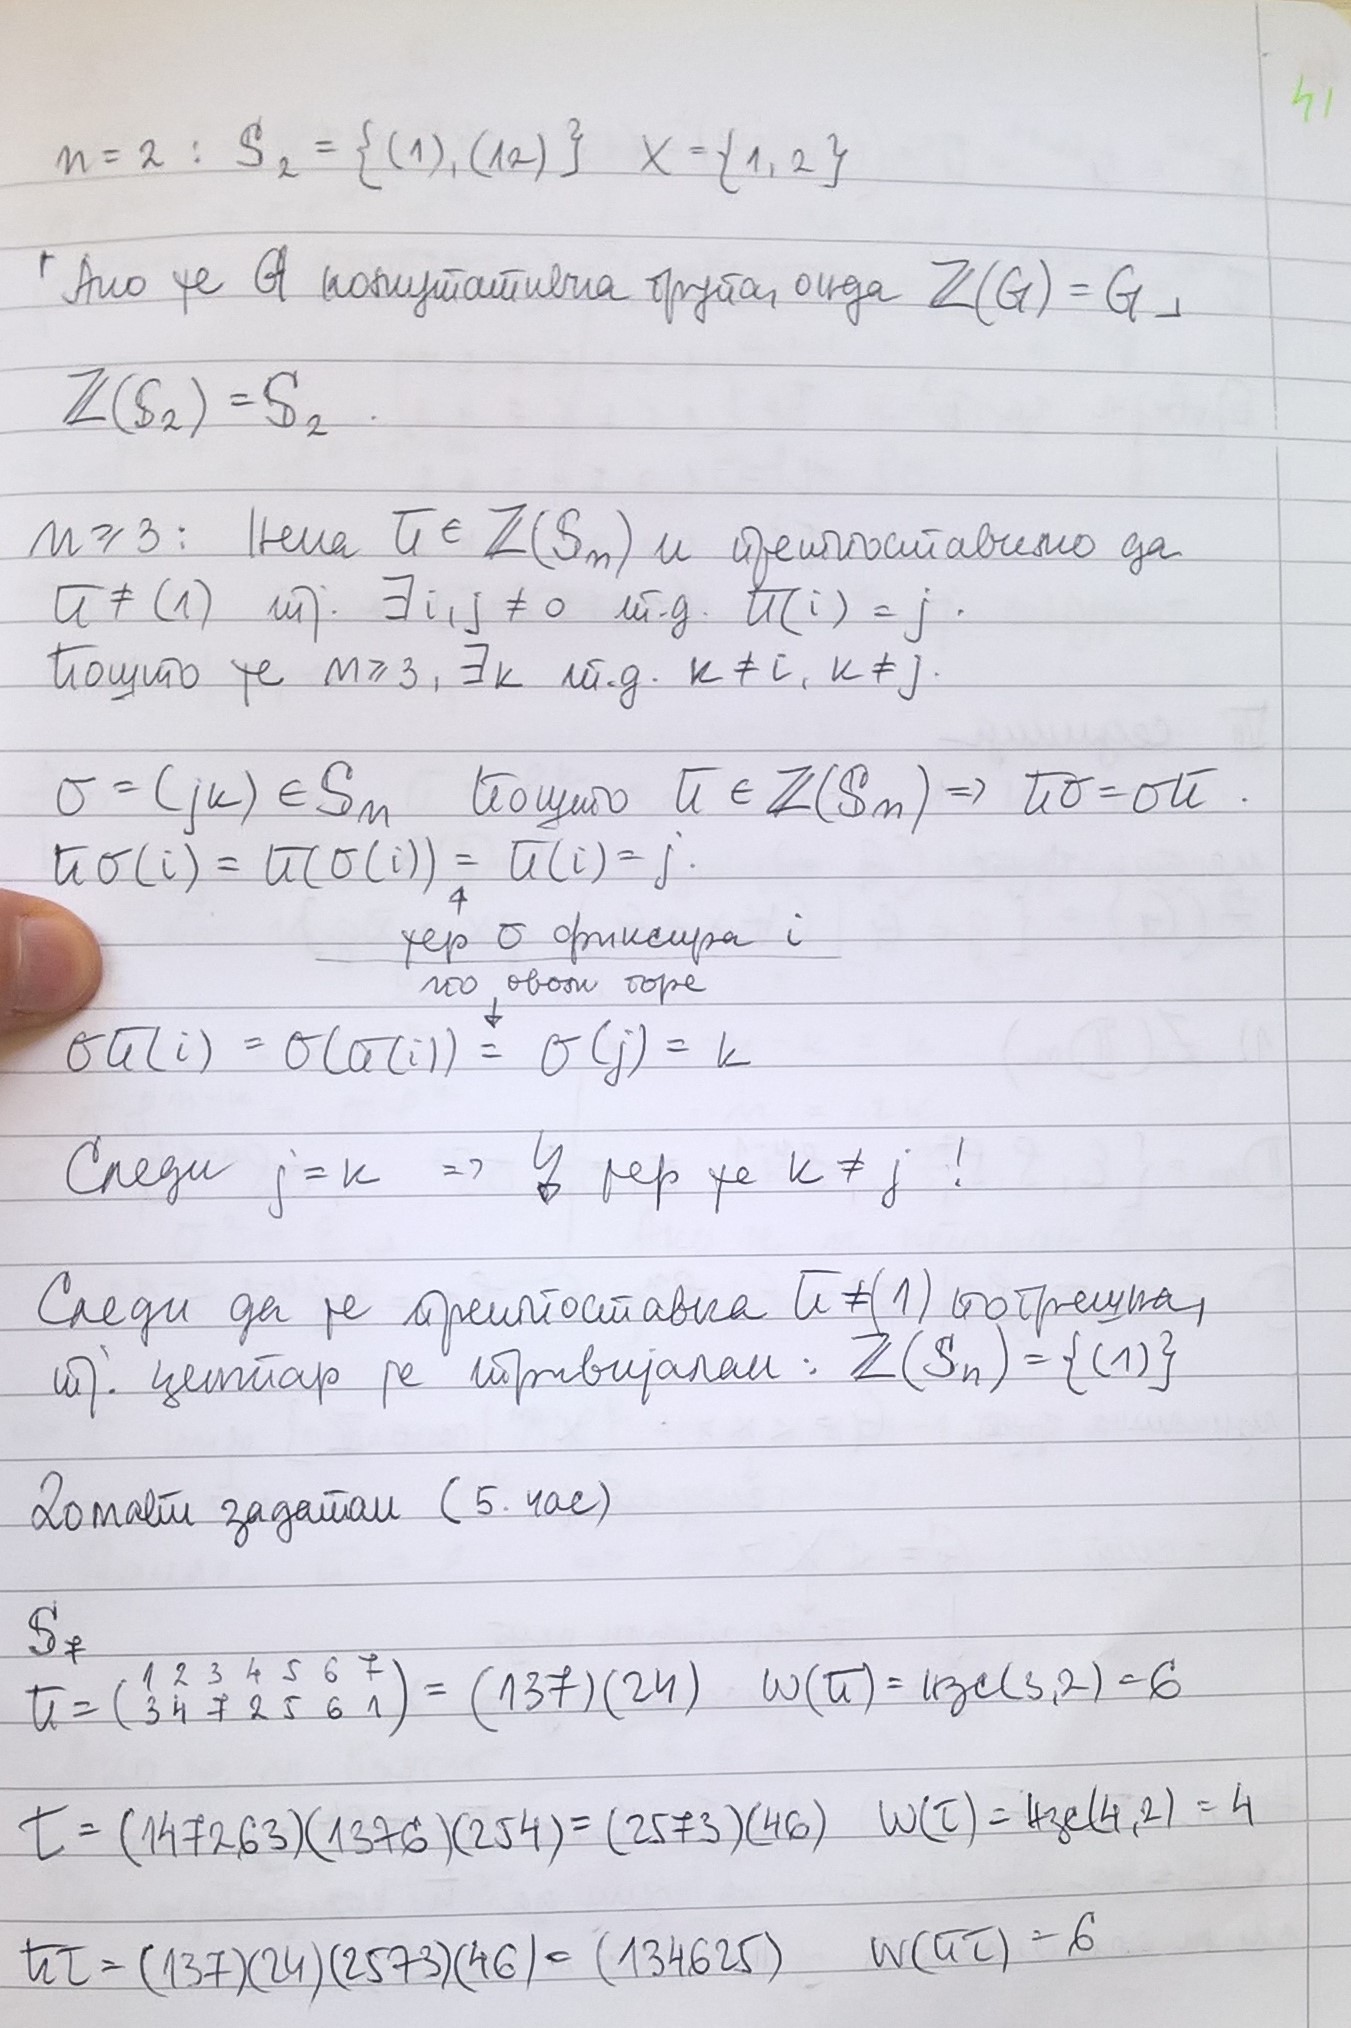 41
n = 2 : S₂ = {(1), (12)} X = {1, 2}
⌜Ако је G комутативна група, онда Z(G) = G⌟
Z(S₂) = S₂.
n ⩾ 3 : Нека π ∈ Z(Sₙ) и претпоставимо да
π ≠ (1) тј. ∃i, j ≠ 0 т.д. π(i) = j.
Пошто је n ⩾ 3, ∃k т.д. k ≠ i, k ≠ j.
σ = (jk) ∈ Sₙ Пошто π ∈ Z(Sₙ) => πσ = σπ.
πσ(i) = π(σ(i)) = π(i) = j.
↑
јер σ фиксира i
по овом горе
↓
σπ(i) = σ(π(i)) = σ(j) = k
Следи j = k => ↯ јер је k ≠ j !
Следи да је претпоставка π ≠ (1) погрешна,
тј. центар је тривијалан : Z(Sₙ) = {(1)}
Домаћи задатак (5. час)
S₇
π = (1 2 3 4 5 6 7
3 4 7 2 5 6 1) = (137)(24) ω(π) = нзс(3,2) = 6
τ = (147263)(1376)(254) = (2573)(46) ω(τ) = нзс(4,2) = 4
πτ = (137)(24)(2573)(46) = (134625) ω(πτ) = 6